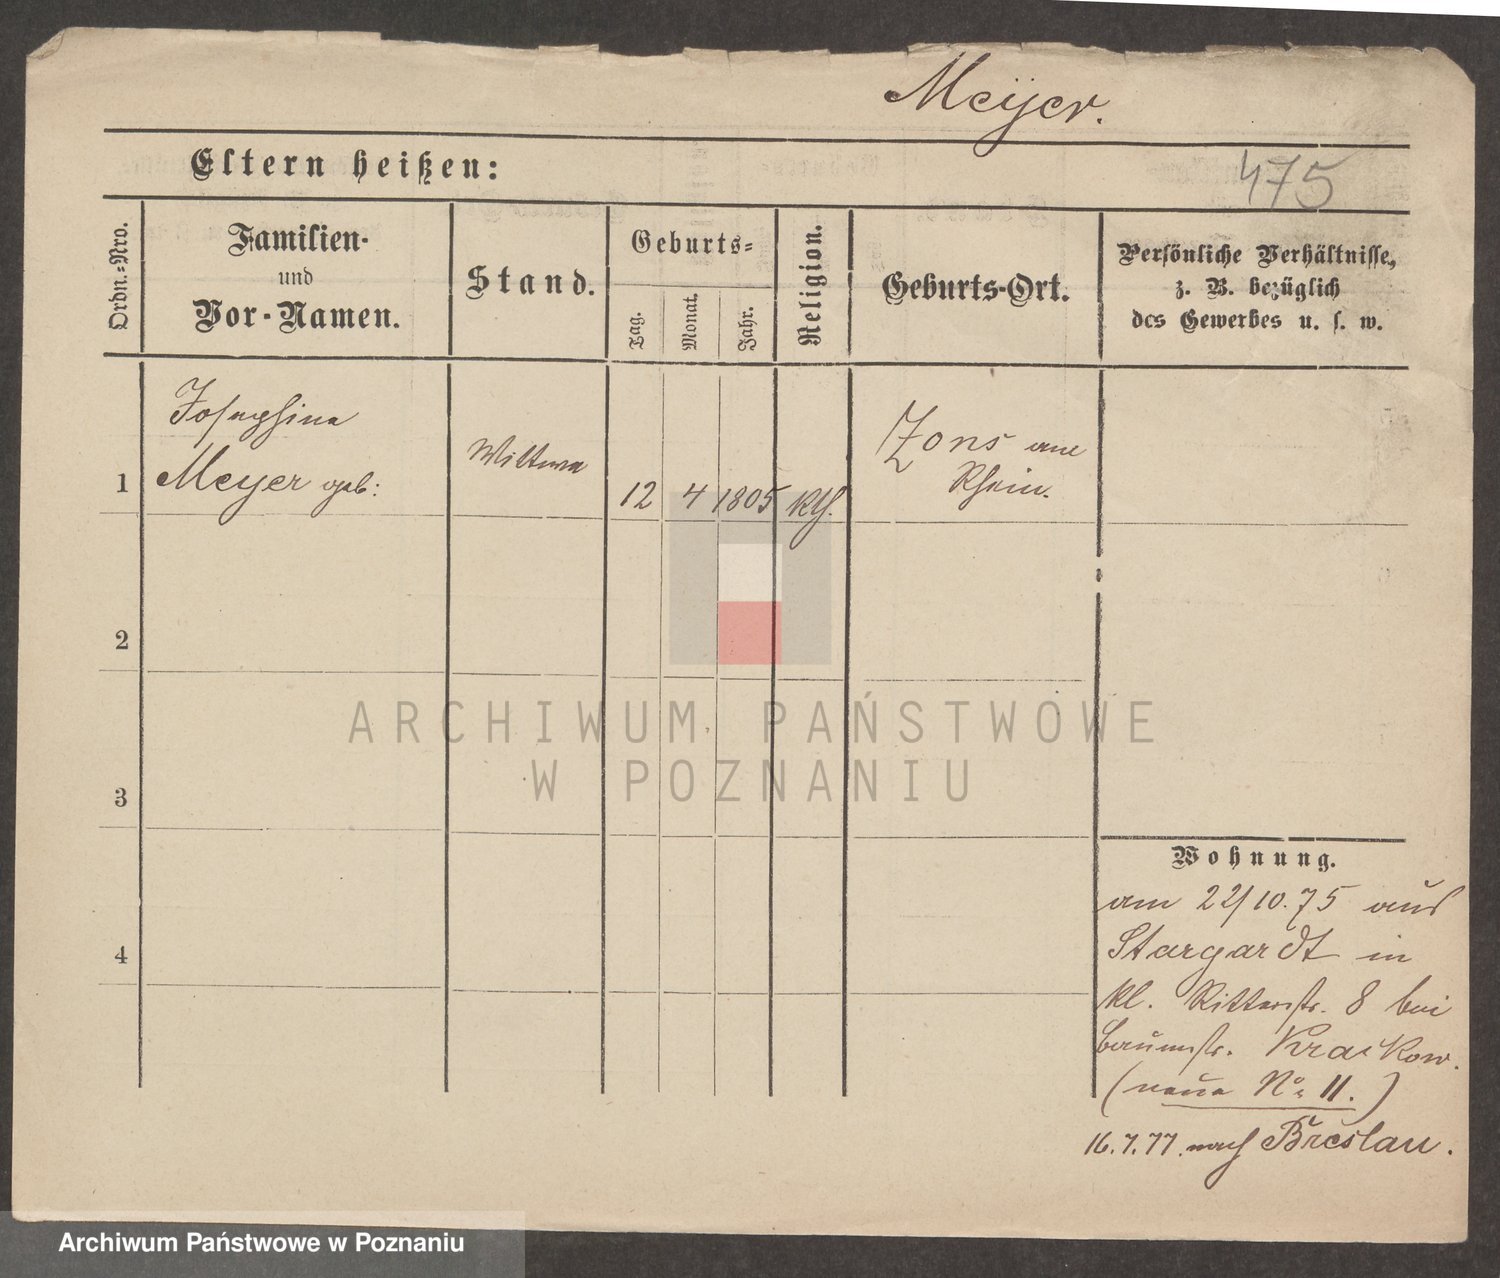 Meÿer.
475
Eltern heißen:
Ordn.=Nro.
Familien-
und
Vor-Namen.
Stand.
Geburts=
Tag.
Monat.
Jahr.
Religion.
Geburts-Ort.
Persönliche Verhältnisse,
z. B. bezüglich
des Gewerbes u. s. w.
1
Josephine
Meyer geb:
Wittwe
12
4
1805
kth.
Zons am
Rhein.
2
3
4
Wohnung.
am 22/10.75 aus
Stargardt in
kl. Ritterstr. 8 bei
Baumstr. Kraikow.
(neue No 11.)
16.7.77. nach Breslau.
ARCHIWUM PAŃSTWOWE
W POZNANIU
Archiwum Państwowe w Poznaniu